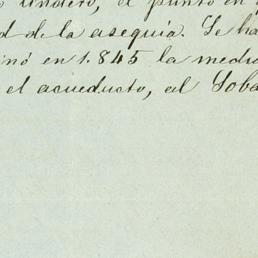 lindero, el punto en
d de la asequia. Se ha
inó en 1.845 la media
el acueducto, al Soba